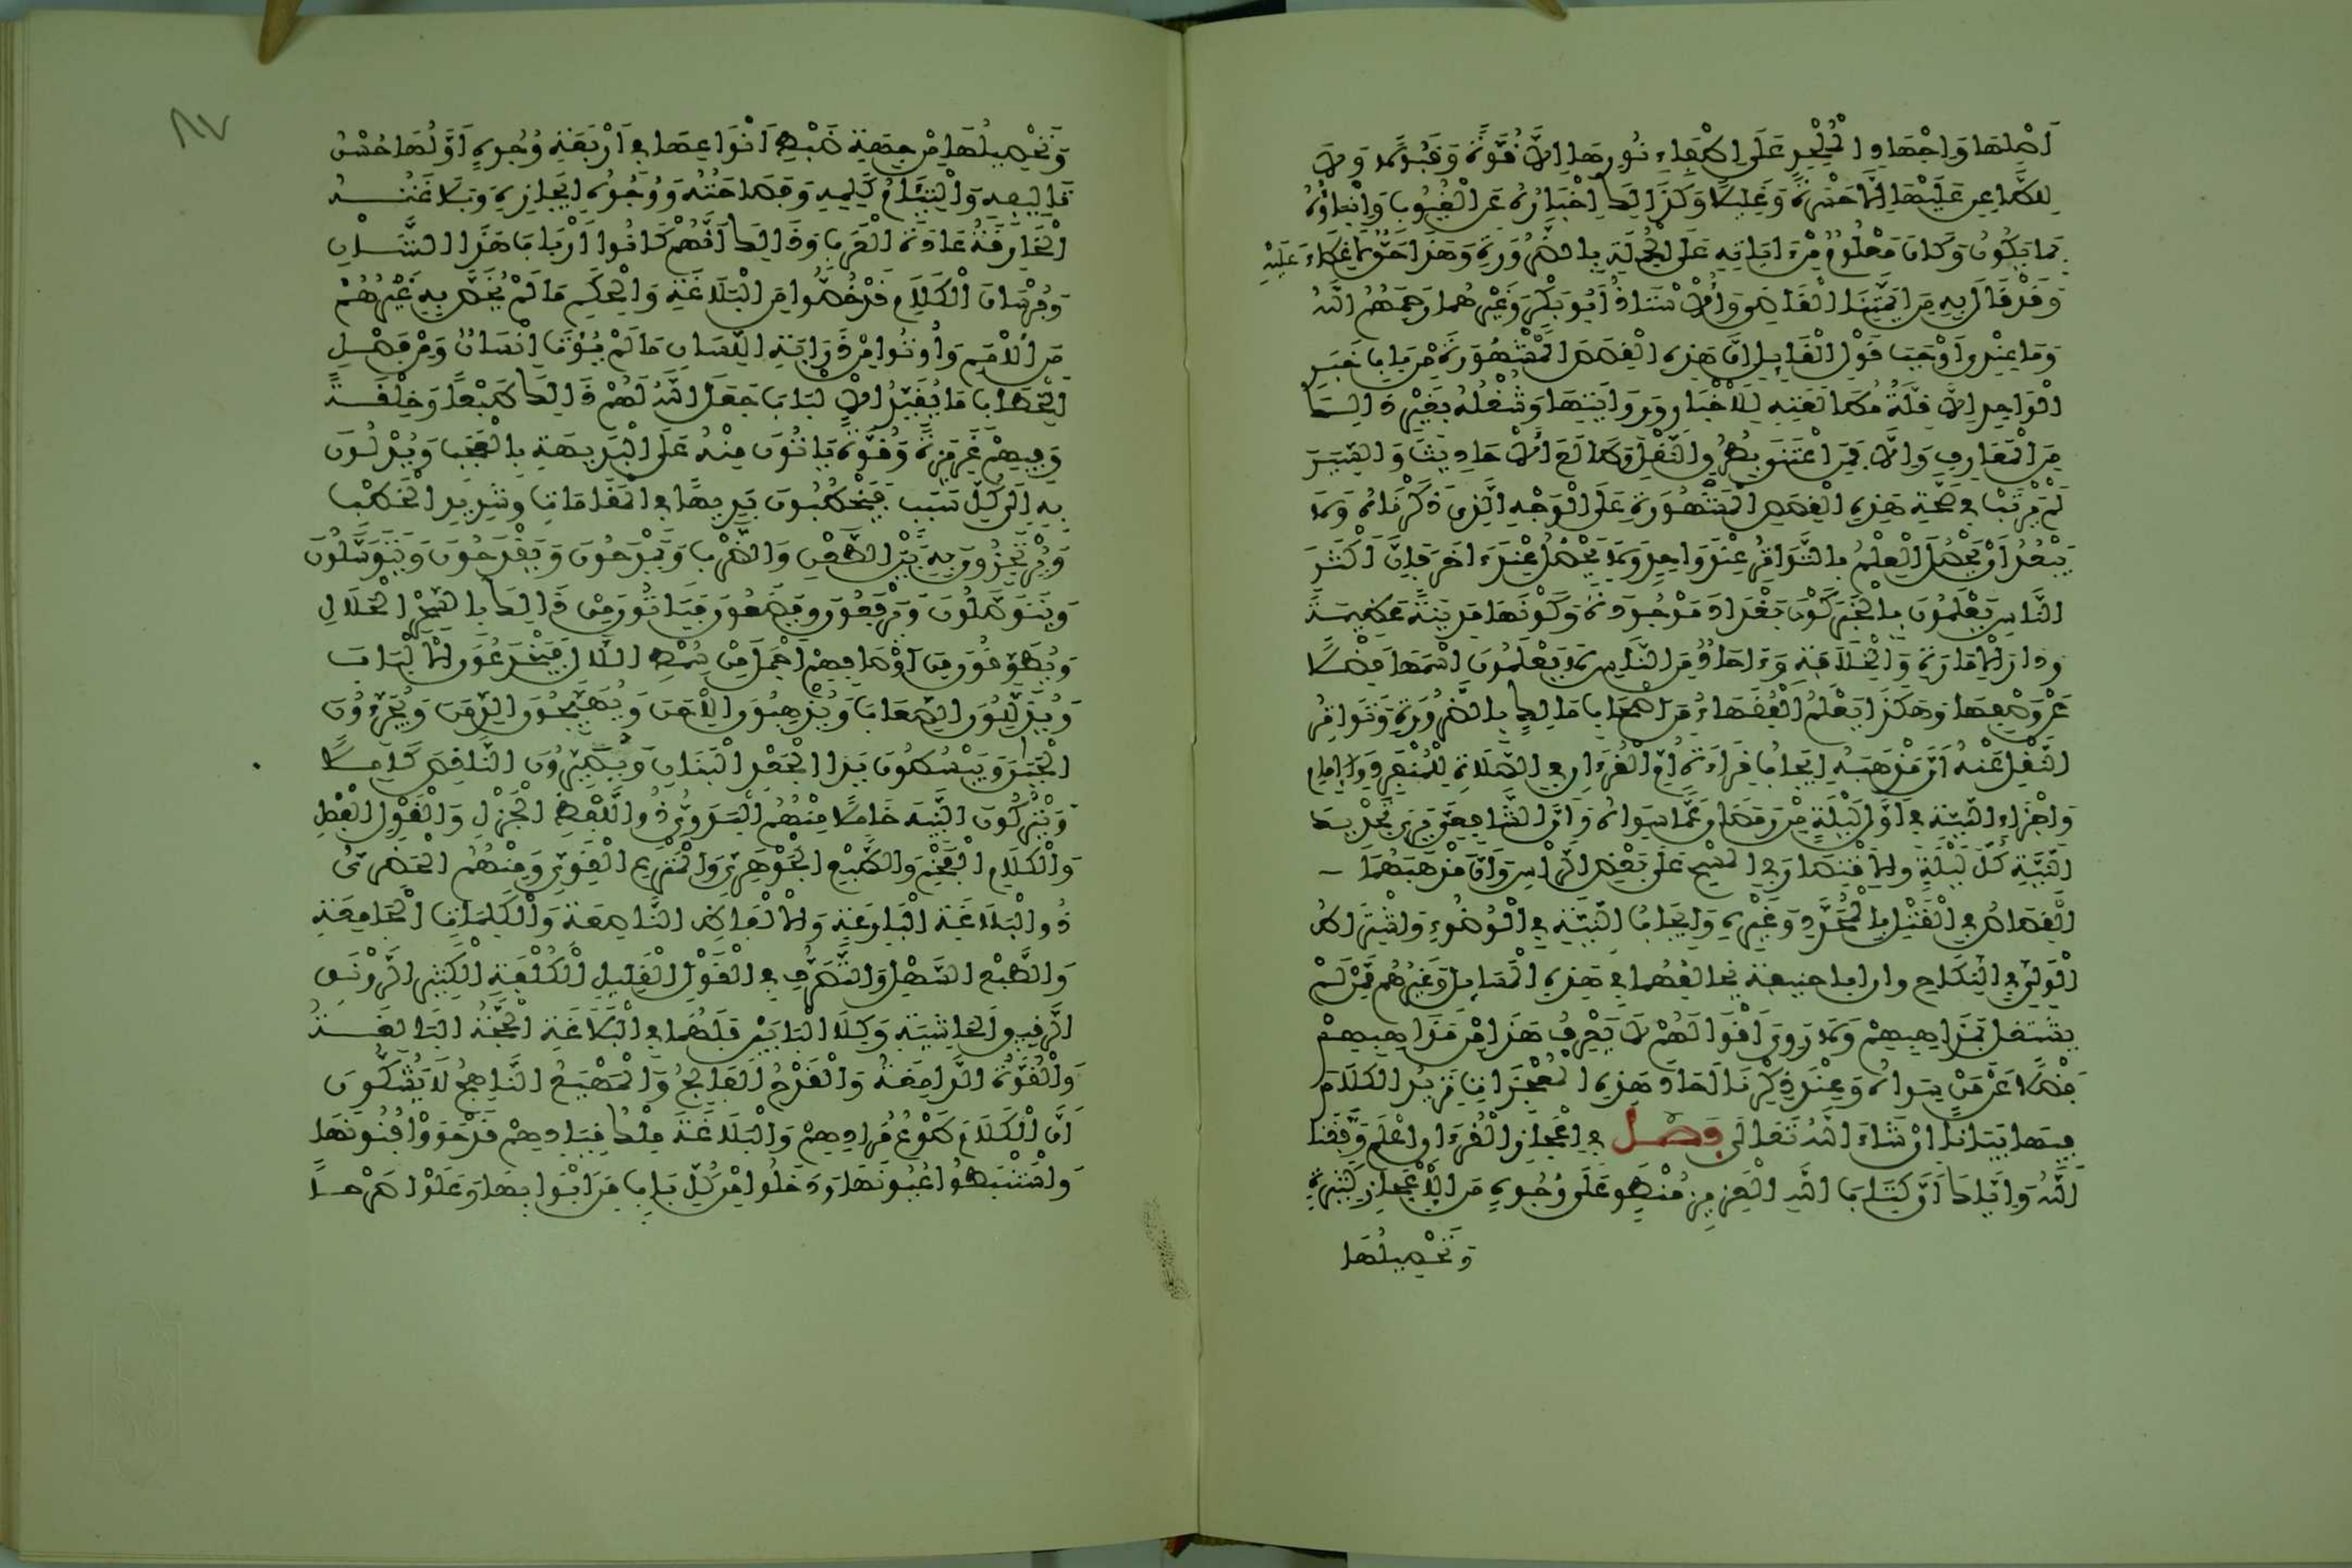 أصلها واجتهاد الملحد على إطفاء نورها إلا قوة وقبولا ولا
للطاعن عليها إلا حسرة وغليلا وكذلك إخباره عن الغيوب وإنباؤه
بما يكون وكان معلوم من ءاياته على الجملة بالضرورة وهذا حق لا غطاء عليه
وقد قال به من أيمتنا القاضي والأستاذ أبو بكر وغيرهما رحمهم الله
وما عندي أوجب قول القايل إن هذه القصص المشهورة من باب خبر
الواحد إلا قلة مطالعته للأخبار وروايتها وشغله بغير ذلك
من المعارف وإلا فمن اعتنى بطرق النقل وطالع الأحاديث والسير
لم يرتب في صحة هذه القصص المشهورة على الوجه الذي ذكرناه ولا
يبعد أن يحصل العلم بالتواتر عند واحد ولا يحصل عند ءاخر فإن أكثر
الناس يعلمون بالخبر كون بغداد موجودة وكونها مدينة عظيمة
ودار الإمارة والخلافة وءاحاد من الناس لا يعلمون اسمها فضلا
عن وصفها وهكذا يعلم الفقهاء من أصحاب مالك بالضرورة وتواتر
النقل عنه أن مذهبه إيجاب قراءة أم القرءان في الصلاة للمنفرد والإمام
وإجزاء النية في أول ليلة من رمضان عما سواه وأن الشافعي يرى تجديد
النية كل ليلة والاقتصار في المسح على بعض الرأس وأن مذهبهما
القصاص في القتل بالمحدد وغيره وإيجاب النية في الوضوء واشتراط
الولي في النكاح وان ابا حنيفة يخالفهما في هذه المسايل وغيرهم ممن لم
يشتغل بمذاهبهم ولا روى أقوالهم لا يعرف هذا من مذاهبهم
فضلا عن من سواه وعند ذكرنا ءاحاد هذه المعجزات نزيد الكلام
فيها بيانا إن شاء الله تعالى فصل في إعجاز القرءان اعلم وفقنا
الله وإياك أن كتاب الله العزيز منطو على وجوه من الإعجاز كثيرة
وتحصيلها
٨٧
وتحصيلها من جهة ضبط أنواعها في أربعة وجوه أولها حسن
تاليفه والتيام كلمه وفصاحته ووجوه إيجازه وبلاغته
الخارقة عادة العرب وذلك أنهم كانوا أرباب هذا الشان
وفرسان الكلام قد خصوا من البلاغة والحكم ما لم يخص به غيرهم
من الأمم وأوتوا من ذرابة اللسان ما لم يؤت إنسان ومن فصل
الخطاب ما يقيد الألباب جعل الله لهم ذلك طبعا وخلقة
وفيهم غريزة وقوة ياتون منه على البديهة بالعجب ويدلون
به إلى كل سبب فيخطبون بديها في المقامات وشديد الخطب
ويرتجزون به بين الطعن والضرب ويمدحون ويقدحون ويتوسلون
ويتوصلون ويرفعون ويضعون فياتون من ذلك بالسحر الحلال
ويطوقون من أوصافهم أجمل من سمط اللآل فيخدعون الألباب
ويذللون الصعاب ويذهبون الإحن ويهيجون الدمن ويجرءون
الجبان ويبسطون يد الجعد البنان ويصيرون الناقص كاملا
ويتركون النبيه خاملا منهم البدوي ذو اللفظ الجزل والقول الفصل
والكلام الفخم والطبع الجوهري والمنزع القوي ومنهم الحضري
ذو البلاغة البارعة والألفاظ الناصعة والكلمات الجامعة
والطبع السهل والتصرف في القول القليل الكلفة الكثير الرونق
الرقيق الحاشية وكلا البابين فلهما في البلاغة الحجة البالغة
والقوة الدامغة والقدح الفالج والمهيع الناهج لا يشكون
أن الكلام طوع مرادهم والبلاغة ملك قيادهم قد حووا فنونها
واستنبطوا عيونها ودخلوا من كل باب من أبوابها وعلوا صرحا